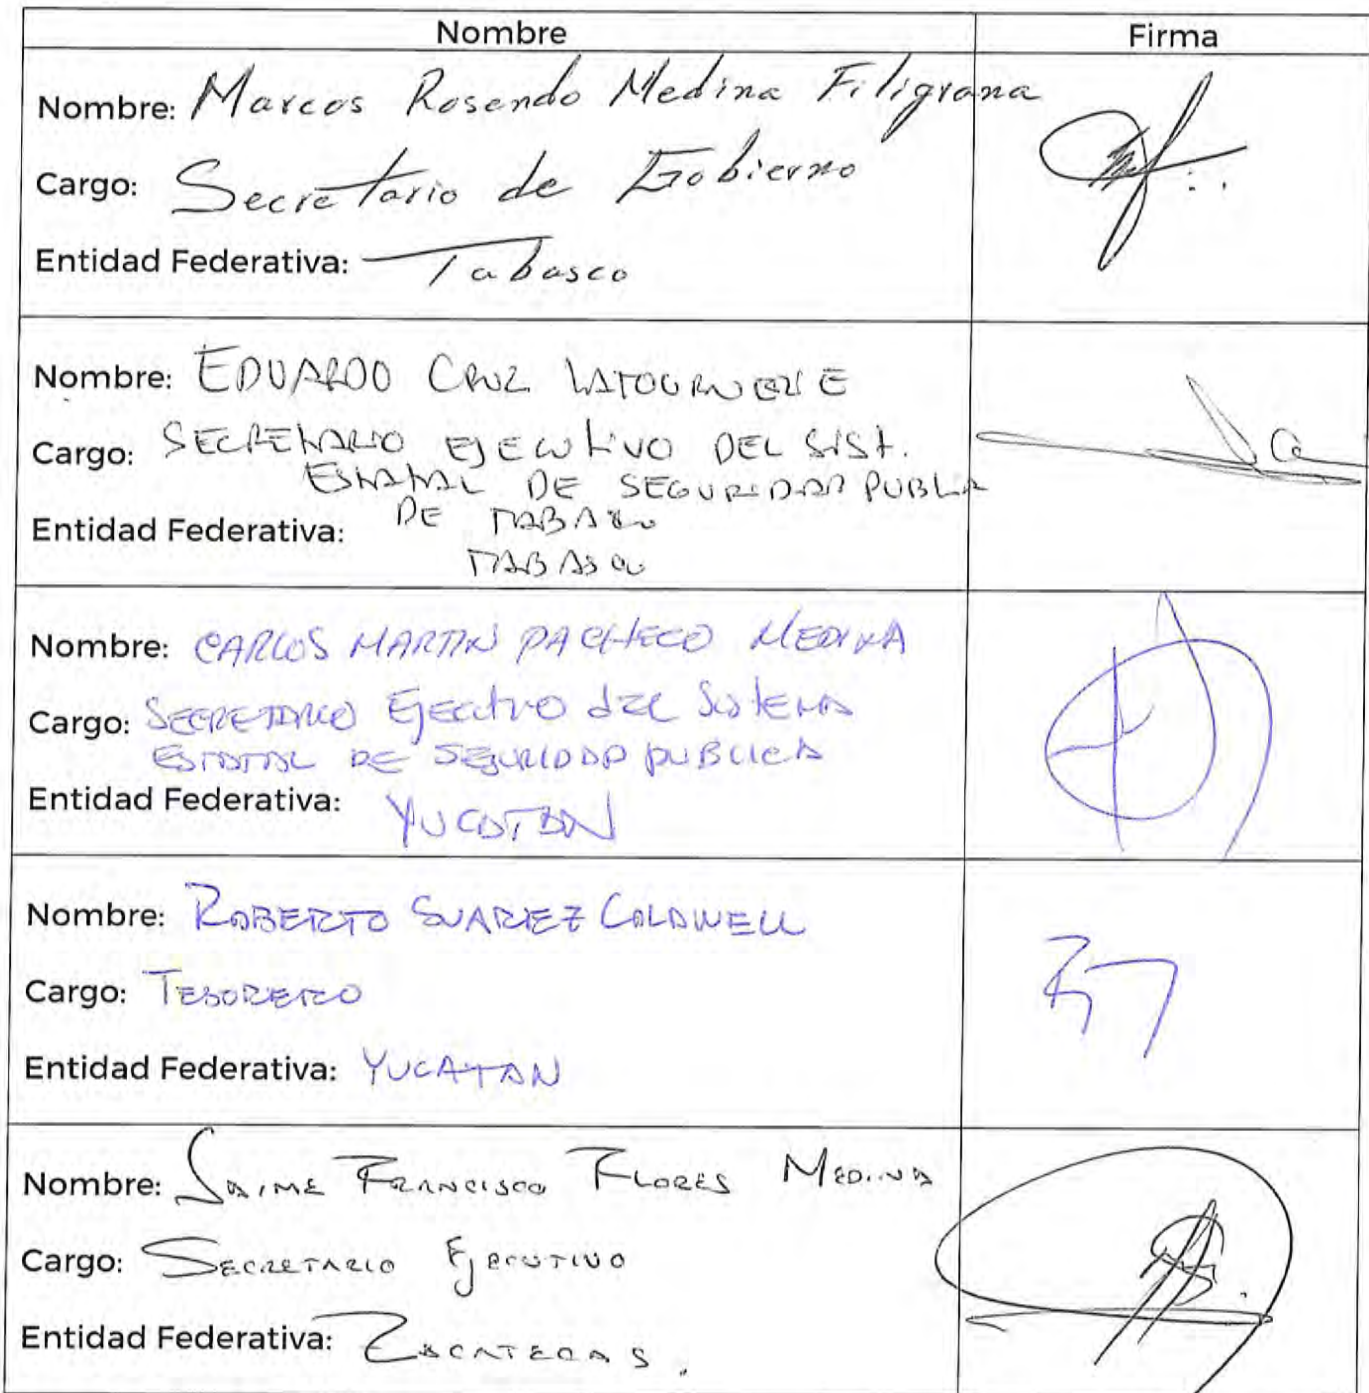 Nombre Firma
Nombre: Marcos Rosendo Medina Filigrana
Cargo: Secretario de Gobierno
Entidad Federativa: Tabasco
Nombre: EDUARDO CRUZ LATOURNERIE
Cargo: SECRETARIO EJECUTIVO DEL SIST.
ESTATAL DE SEGURIDAD PUBLICA
DE TABASCO
Entidad Federativa:
TABASCO
Nombre: CARLOS MARTIN PACHECO MEDINA
Cargo: SECRETARIO Ejecutivo del Sistema
ESTATAL DE SEGURIDAD PUBLICA
Entidad Federativa: YUCATAN
Nombre: ROBERTO SUAREZ COLDWELL
Cargo: TESORERO
Entidad Federativa: YUCATAN
Nombre: JAIME FRANCISCO FLORES MEDINA
Cargo: SECRETARIO EJECUTIVO
Entidad Federativa: ZACATECAS.